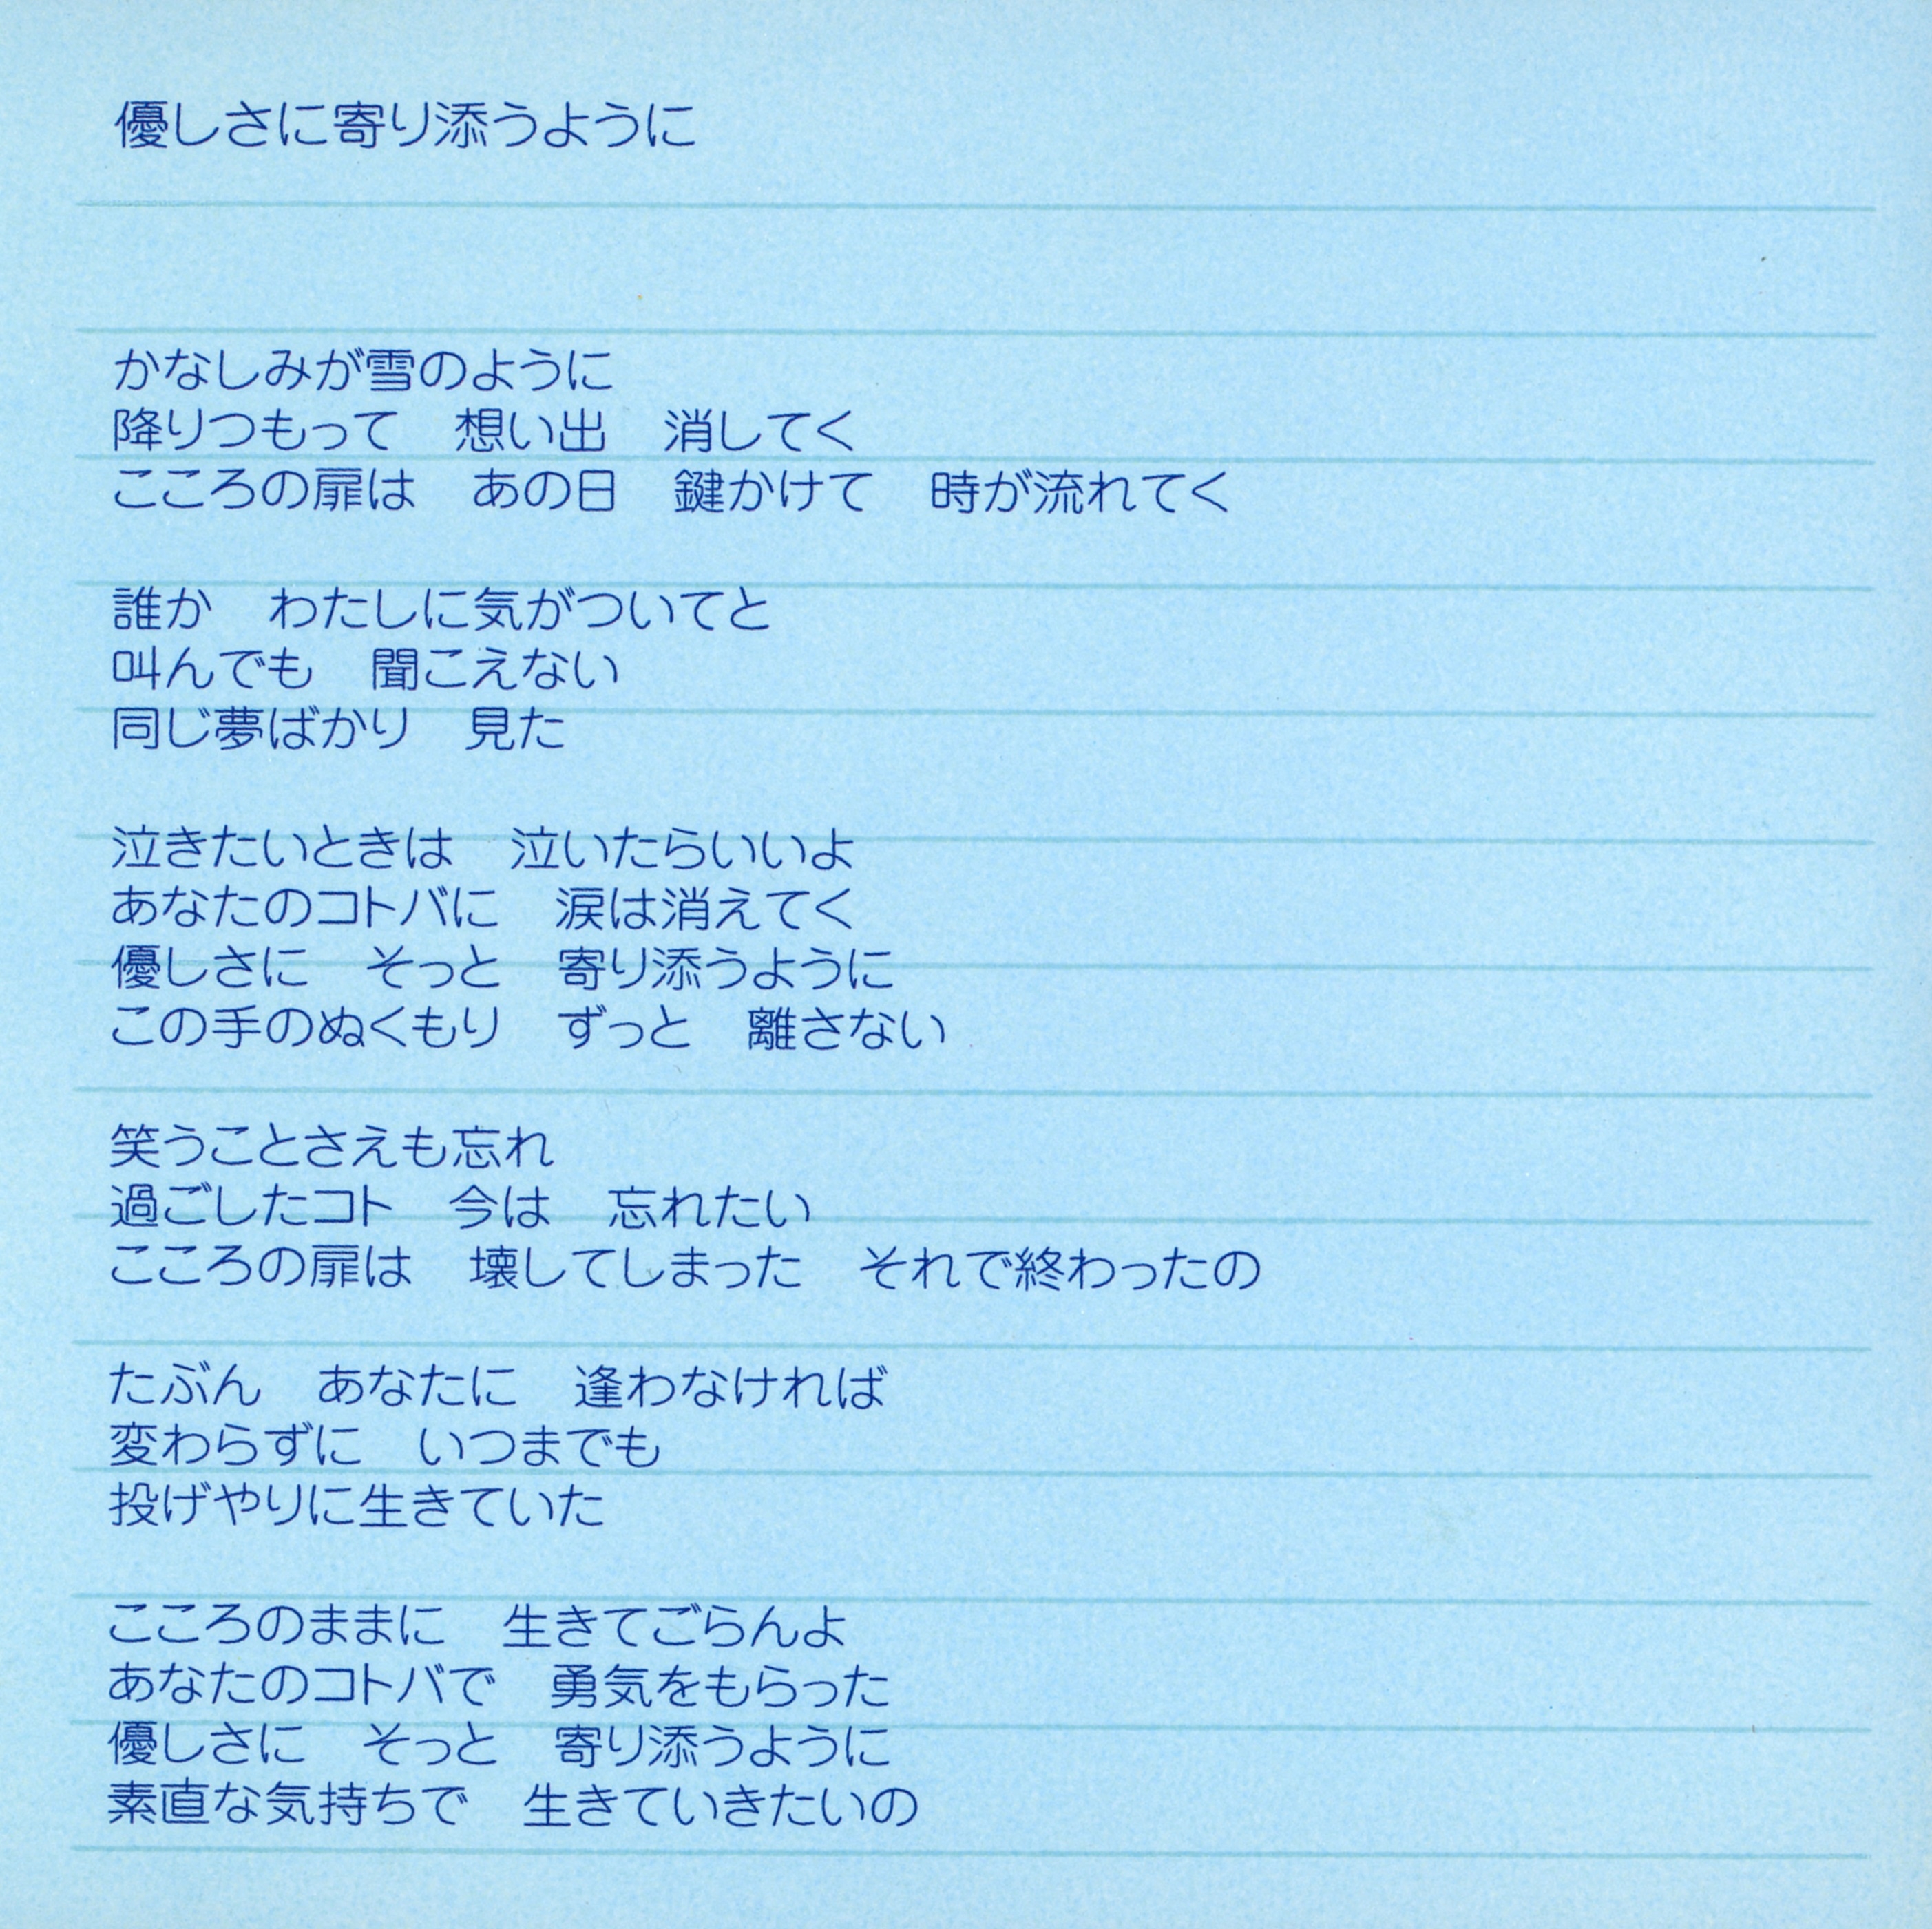 優しさに寄り添うように
かなしみが雪のように
降りつもって　想い出　消してく
こころの扉は　あの日　鍵かけて　時が流れてく
誰か　わたしに気がついてと
叫んでも　聞こえない
同じ夢ばかり　見た
泣きたいときは　泣いたらいいよ
あなたのコトバに　涙は消えてく
優しさに　そっと　寄り添うように
この手のぬくもり　ずっと　離さない
笑うことさえも忘れ
過ごしたコト　今は　忘れたい
こころの扉は　壊してしまった　それで終わったの
たぶん　あなたに　逢わなければ
変わらずに　いつまでも
投げやりに生きていた
こころのままに　生きてごらんよ
あなたのコトバで　勇気をもらった
優しさに　そっと　寄り添うように
素直な気持ちで　生きていきたいの